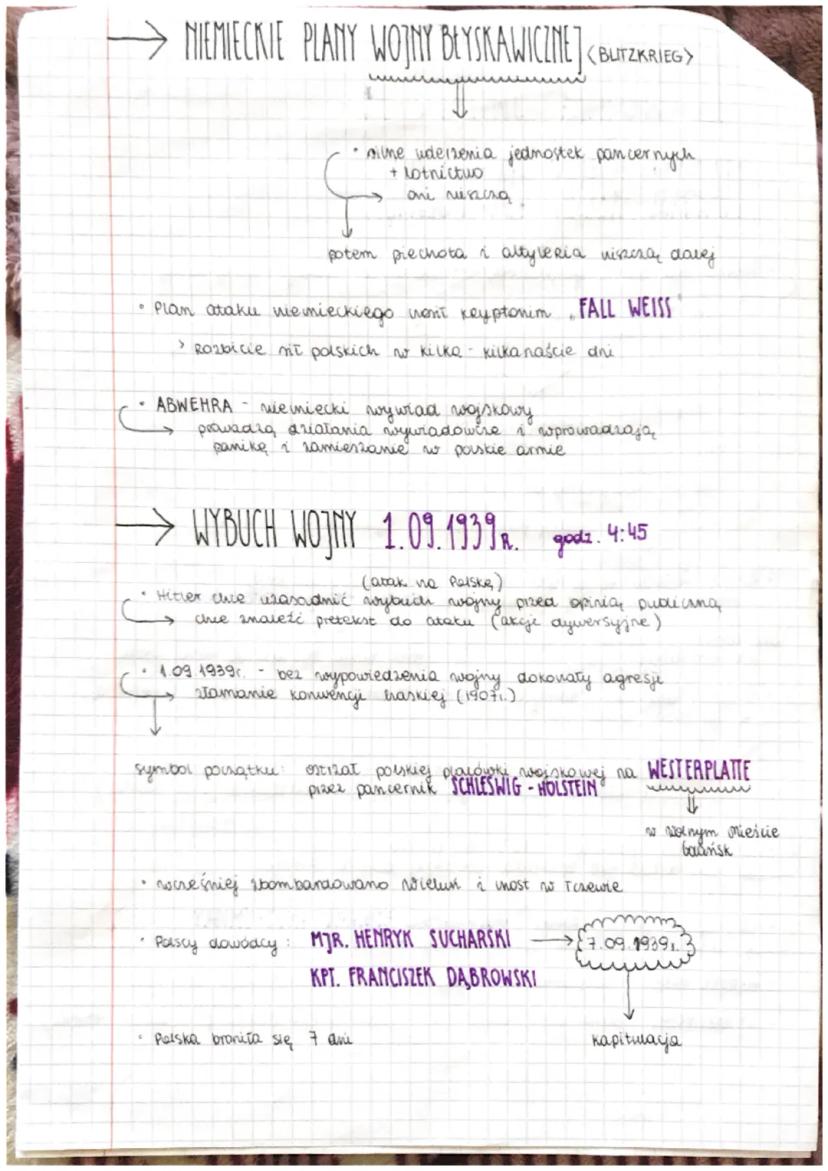 → NIEMIECKIE PLANY WOJNY BŁYSKAWICZNEJ <BLITZKRIEG>
• silne uderzenia jednostek pancernych
+ lotnictwo
oni niszczą
potem piechota i artyleria niszczą dalej
• Plan ataku niemieckiego nosił kryptonim „FALL WEISS"
> Rozbicie sił polskich w kilka - kilkanaście dni
• ABWEHRA - niemiecki wywiad wojskowy
prowadzą działania wywiadowcze i wprowadzają
panikę i zamieszanie w polskie armie
→ WYBUCH WOJNY 1.09.1939R. godz. 4:45
(atak na Polskę)
• Hitler chce uzasadnić wybuch wojny przed opinią publiczną
chce znaleźć pretekst do ataku (akcje dywersyjne)
• 1.09 1939r. - bez wypowiedzenia wojny dokonały agresji
złamanie konwencji haskiej (1907r.)
symbol początku: ostrzał polskiej placówki wojskowej na WESTERPLATTE
przez pancernik SCHLESWIG - HOLSTEIN
w Wolnym Mieście
Gdańsk
• wcześniej zbombardowano Wieluń i most w Tczewie
• Polscy dowódcy: MJR. HENRYK SUCHARSKI → 7.09.1939r.
KPT. FRANCISZEK DĄBROWSKI
• Polska broniła się 7 dni
kapitulacja